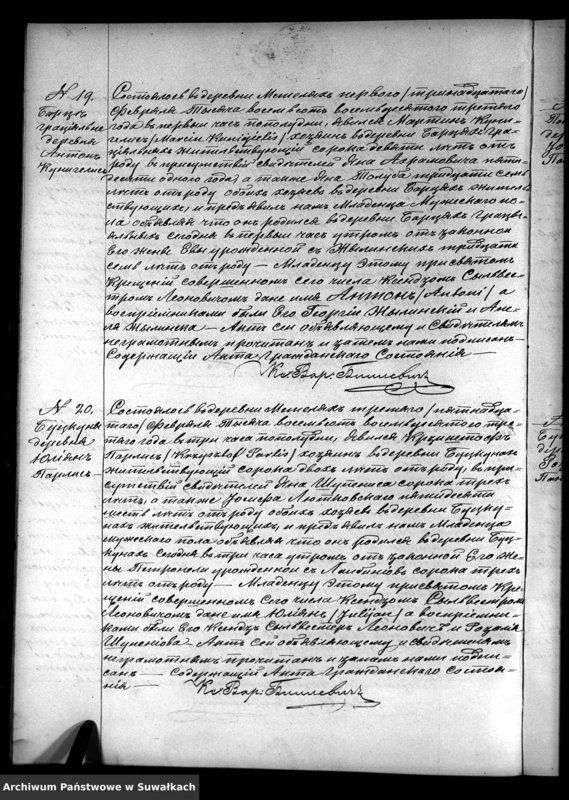 N 19.
Барцк
граціальне
деревня
Антонъ
Кунигелисъ
Состоялось въ деревни Метеляхъ перваго/тринадцатаго/
Февраля Тысяча восемьсотъ восемьдесятаго третяго
года въ первый часъ пополудни, явился Мартинъ Куни-
гелисъ /Marcin Kunigielis/ хозяинъ въ деревни Барцяхъ Гра-
ціяльныхъ жительствующій сорока девяти лѣтъ отъ
роду въ присутствіи свидѣтелей Яна Ахрамовича пять-
десяти одного года, а также Яна Толуба тридцати семь
лѣтъ отъ роду обоихъ хозяевъ въ деревни Барцяхъ житель-
ствующихъ, и предъявилъ намъ Младенца Мужескаго по-
ла объявляя что онъ родился въ деревни Барцяхъ Грація-
льныхъ сегодня въ первый часъ утромъ отъ законной
Его жены Евы урожденной съ Жилинскихъ тридцати
семь лѣтъ отъ роду — Младенцу этому при святомъ
Крещеніи совершенномъ сего числа Ксендзомъ Сильве-
стромъ Леоновичомъ дано имя Антонъ /Antoni/ а
воспріемниками были Его Георгій Жилинскій и Анe-
ля Жилинска — Актъ сей объявляющему и Свидѣтелямъ
неграмотнымъ прочитанъ и цатемъ нами подписанъ —
Содержащій Акта Гражданскаго Состоянія —
Кс. Вар: Билевичъ
N 20.
Буцкуны
деревня
Юліянъ
Парлисъ
Состоялось въ деревни Метеляхъ третяго /пятнадца-
таго/ Февраля Тысяча восемьсотъ восемьдесятаго тре-
тяго года въ три часа пополудни, явился Криштофъ
Парлисъ /Krzysztof Parlis/ хозяинъ въ деревни Буцкунахъ
жительствующій сорока двохъ лѣтъ отъ роду, въ при-
сутствіи свидѣтелей Яна Шупениса сорока трехъ
лѣтъ, а также Іосифа Лютковскаго пятидесяти
шесть лѣтъ отъ роду обоихъ хозяевъ въ деревни Буцку-
нахъ жительствующихъ, и предъявилъ намъ Младенца
мужескаго пола объявляя что онъ родился въ деревни Буц-
кунахъ сегодня въ три часа утромъ отъ законной Его же-
ны Петронели урожденной съ сорока трехъ
лѣтъ отъ роду — Младенцу этому при святомъ Кре-
щеніи совершенномъ сего числа Ксендзомъ Сильвестромъ
Леоновичомъ дано имя Юліянъ /Julijan/ а воспріемни-
ками были Его Ксендзъ Сильвестеръ Леоновичъ и
Шупеніова Актъ сей объявляющему и свидѣтелямъ
неграмотнымъ прочитанъ и цатемъ нами подпи-
санъ — Содержащій Акта Гражданскаго Состоя-
нія —
Кс. Вар: Билевичъ
Archiwum Państwowe w Suwałkach